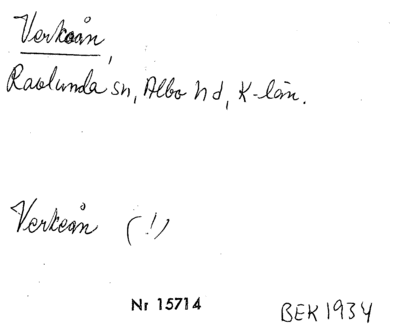 Verkaån,
Ravlunda sn, Albo hd, K-län.
Verkeån (!)
Nr 15714
BEK 1934